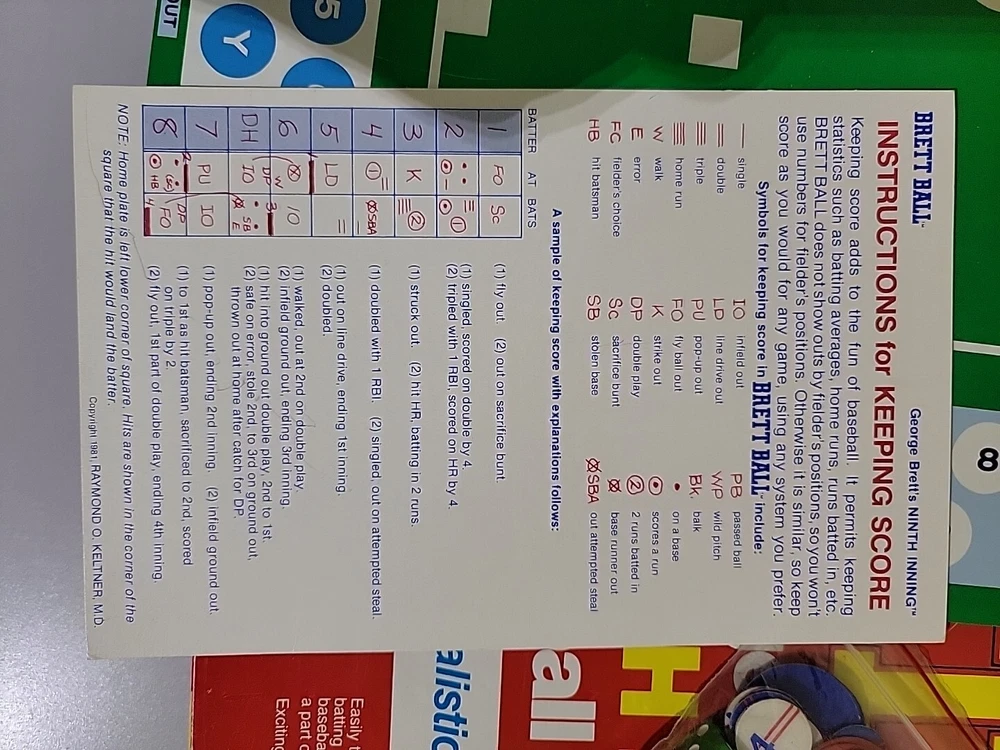 BRETT BALL™ George Brett's NINTH INNING™
INSTRUCTIONS for KEEPING SCORE
Keeping score adds to the fun of baseball. It permits keeping
statistics such as batting averages, home runs, runs batted in, etc.
BRETT BALL does not show outs by fielder's positions, so you won't
use numbers for fielder's positions. Otherwise it is similar, so keep
score as you would for any game, using any system you prefer.
Symbols for keeping score in BRETT BALL™ include:
— single IO infield out PB passed ball
= double LD line drive out WP wild pitch
≡ triple PU pop-up out Bk. balk
home run FO fly ball out • on a base
W walk K strike out ⊙ scores a run
E error DP double play ② 2 runs batted in
FC fielder's choice Sc sacrifice bunt base runner out
HB hit batsman SB stolen base SBA out attempted steal
A sample of keeping score with explanations follows:
BATTER AT BATS
1 FO Sc (1) fly out. (2) out on sacrifice bunt.
2 ① (1) singled, scored on double by 4.
(2) tripled with 1 RBI, scored on HR by 4.
3 K ② (1) struck out. (2) hit HR, batting in 2 runs.
4 ① SBA (1) doubled with 1 RBI. (2) singled, out on attempted steal.
5 LD = (1) out on line drive, ending 1st inning.
(2) doubled.
6 W IO (1) walked, out at 2nd on double play.
(2) infield ground out, ending 3rd inning.
DH DP IO SB E (1) hit into ground out double play, 2nd to 1st.
(2) safe on error, stole 2nd, to 3rd on ground out,
thrown out at home after catch for DP.
7 PU IO (1) pop-up out, ending 2nd inning. (2) infield ground out.
8 HB DP FO (1) to 1st as hit batsman, sacrificed to 2nd, scored
on triple by 2.
(2) fly out, 1st part of double play, ending 4th inning.
NOTE: Home plate is left lower corner of square. Hits are shown in the corner of the
square that the hit would land the batter.
Copyright 1981, RAYMOND O. KELTNER, M.D.
OUT
Y
5
8
H
all
alistic
Easily t
batting
baseba
a part o
Exciting